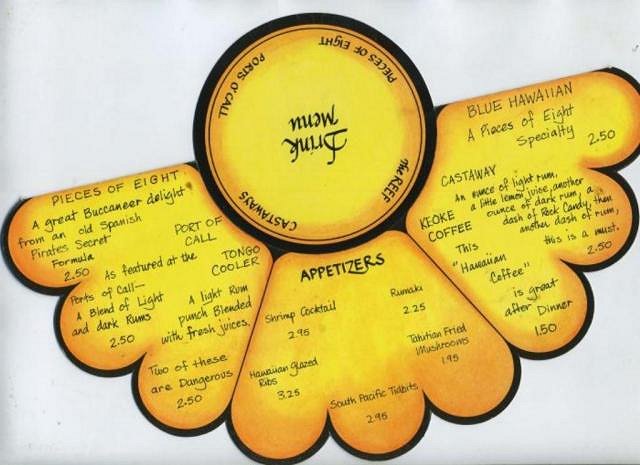 PIECES OF EIGHT
PORTS O' CALL
the REEF
CASTAWAYS
Drink
Menu
PIECES OF EIGHT
A great Buccaneer delight
from an old Spanish
Pirates Secret
Formula
2.50
PORT OF
CALL
As featured at the
Ports of Call—
A Blend of Light
and dark Rums
2.50
TONGO
COOLER
A light Rum
punch Blended
with fresh juices.
Two of these
are Dangerous
2.50
APPETIZERS
Shrimp Cocktail
2.95
Rumaki
2.25
Hawaiian glazed
Ribs
3.25
Tahitian Fried
Mushrooms
1.95
South Pacific Tidbits
2.95
BLUE HAWAIIAN
A Pieces of Eight
Specialty
2.50
CASTAWAY
An ounce of light rum,
a little lemon juice, another
ounce of dark rum, a
dash of Rock Candy, then
another dash of rum,
this is a must.
2.50
KIOKE
COFFEE
This
"Hawaiian
Coffee"
is great
after Dinner
1.50